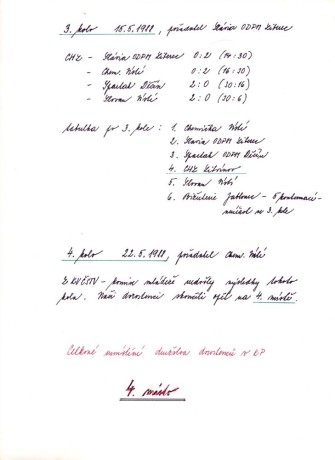 3. kolo 15.5.1988, pořadatel Slávia ODPM Liberec
CHZ - Slávia ODPM Liberec 0:2 (14:30)
- Chem. Ústí 0:2 (16:30)
- Spartak Děčín 2:0 (30:16)
- Slovan Ústí 2:0 (30:6)
tabulka po 3. kole: 1. Chemička Ústí
2. Slavia ODPM Liberec
3. Spartak ODPM Děčín
4. CHZ Litvínov
5. Slovan Ústí
6. Bižuterie Jablonec -
ve 3. kole
4. kolo 22.5.1988, pořadatel Chem. Ústí
Z KV ČSTV - komise mládeže nedošly výsledky tohoto
kola. Naši dorostenci skončili opět na 4. místě.
Celkové umístění družstva dorostenců v KP
4. místo